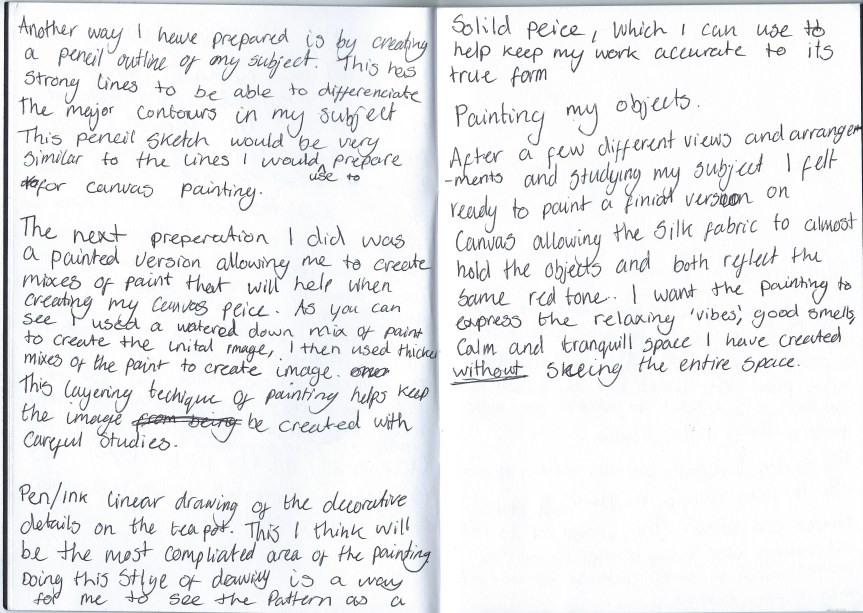 Another way I have prepared is by creating
a pencil outline of my subject. This has
strong lines to be able to differenciate
the major contours in my subject
This pencil sketch would be very
similar to the lines I would prepare
use to
for canvas painting.
The next preperation I did was
a painted version allowing me to create
mixes of paint that will help when
creating my canvas peice. As you can
see I used a watered down mix of paint
to create the inital image, I then used thicker
mixes of the paint to create image.
This layering techique of painting helps keep
the image from being be created with
careful studies.
Pen/ink linear drawing of the decorative
details on the teapot. This I think will
be the most compliated area of the painting
Doing this stlye of drawing is a way
for me to see the pattern as a
Solild peice, which I can use to
help keep my work accurate to its
true form
Painting my objects.
After a few different views and arrangem
-ments and studying my subject I felt
ready to paint a finial version on
Canvas allowing the silk fabric to almost
hold the objects and both reflect the
same red tone.. I want the painting to
express the relaxing 'vibes', good smells,
calm and tranquill space I have created
without seeing the entire space.